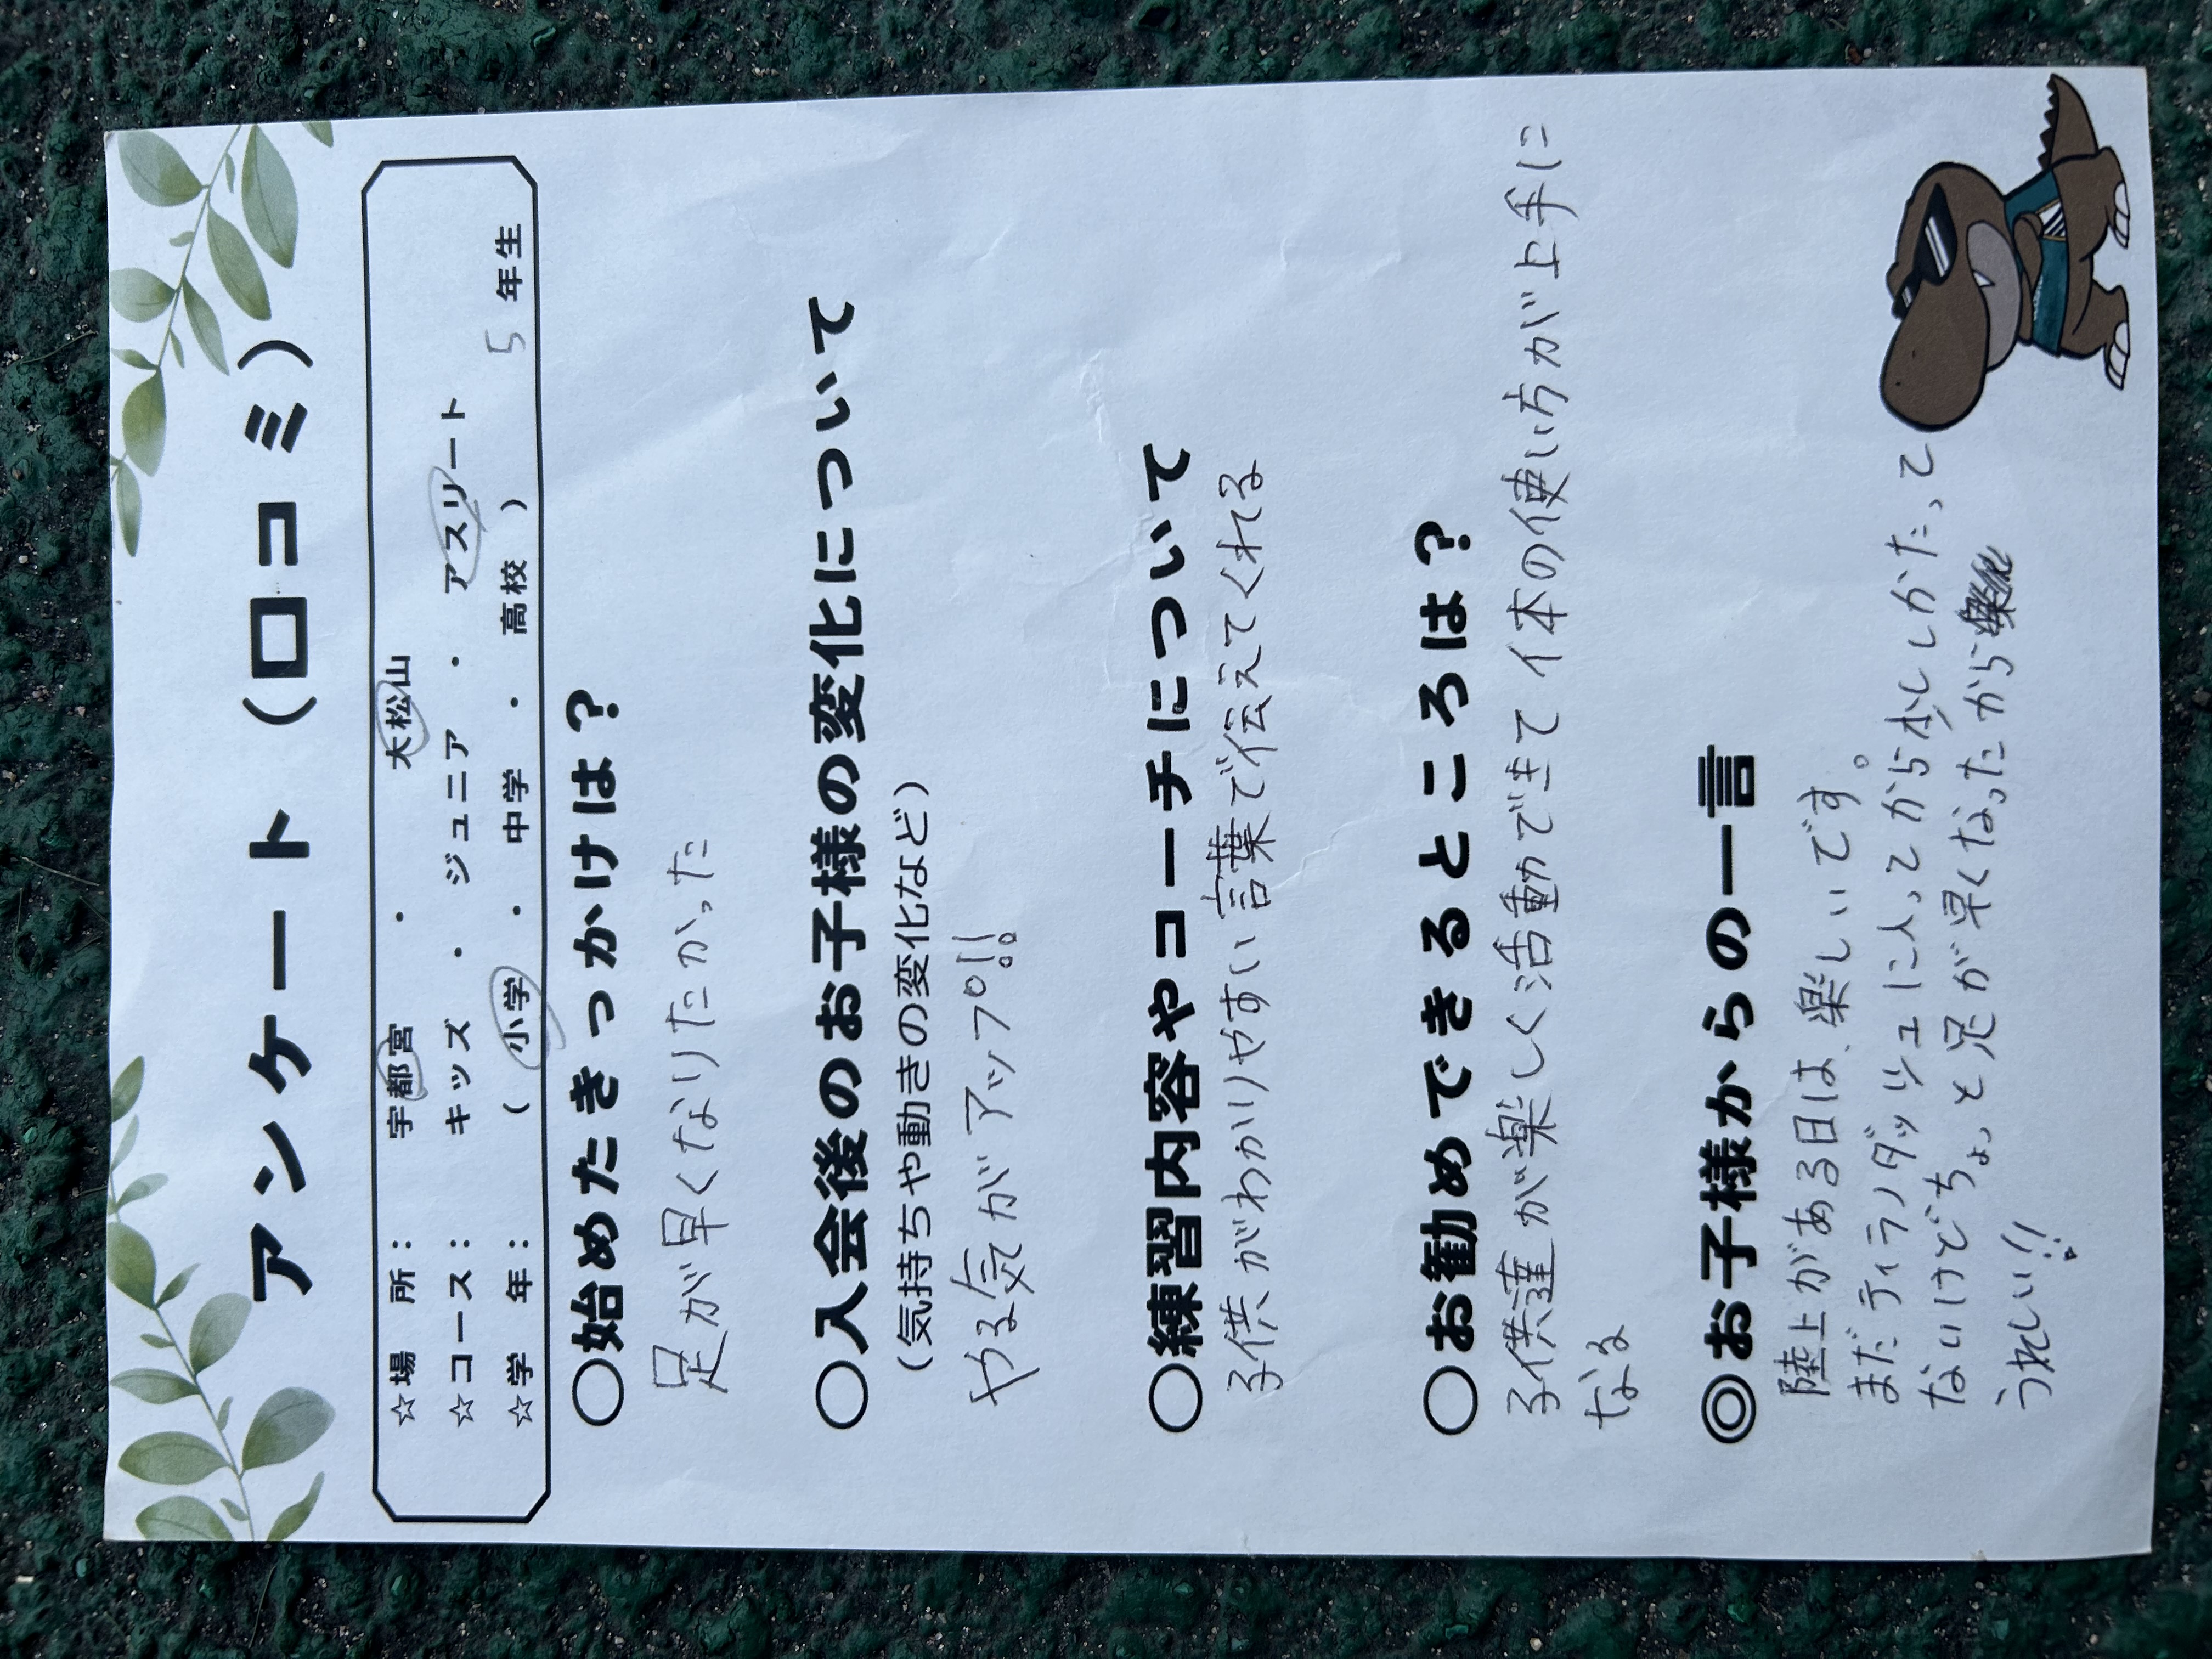 アンケート（口コミ）
☆場　所：　宇都宮　・　大松山
☆コース：　キッズ　・　ジュニア　・　アスリート
☆学　年：　（　小学　・　中学　・　高校　）　5　年生
○始めたきっかけは？
足が早くなりたかった
○入会後のお子様の変化について
（気持ちや動きの変化など）
やる気がアップ!!
○練習内容やコーチについて
子供がわかりやすい言葉で伝えてくれる
○お勧めできるところは？
子供達が楽しく活動できて体の使い方が上手に
なる
◎お子様からの一言
陸上がある日は、楽しいです。
まだティラノダッシュに入ってから少ししかたって
ないけどちょっと足が早くなったから
うれしい!!